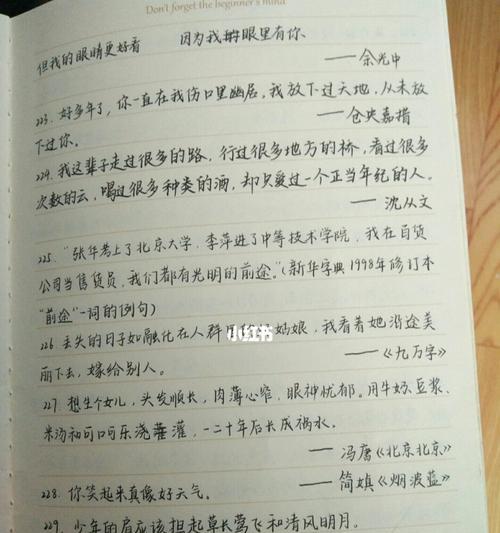 Don't forget the beginner's mind
但我的眼睛更好看 因为我眼里有你
——余光中
223. 好多年了，你一直在我伤口里幽居，我放下过天地，从未放
下过你。 ——仓央嘉措
224. 我这辈子走过很多的路，行过很多地方的桥，看过很多
次数的云，喝过很多种类的酒，却只爱过一个正当年纪的人。
——沈从文
225. "张华考上了北京大学，李萍进了中等技术学院，我在百货
公司当售货员，我们都有光明的前途。"(新华字典1998年修订本
"前途"一词的例句)
226 丢失的日子如融化在人群里 姑娘，我看着她沿途美
丽下去，嫁给别人。 ——《九万字》
小红书
227. 想生个女儿，头发顺长，肉薄心窄，眼神忧郁。用牛奶、豆浆、
米汤和可口可乐浇灌，一二十年后长成祸水。
——冯唐《北京北京》
228. 你笑起来真像好天气。 ——简媜《烟波蓝》
229. 少年的肩应该担起草长莺飞和清风明月。